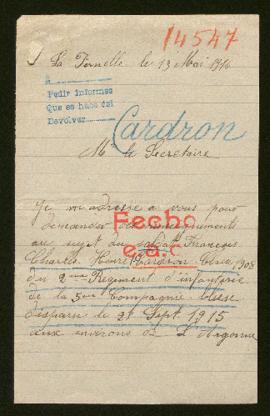 14547
La Pernelle le 13 Mai 1916
Pedir informes
Que se haba del
Devolver
Cardron
Mr le Secretaire
Je m'adresse a vous pour
demander des renseignements
Fecho
au sujet du soldat Français
e.a.c
Charles Henri Cardron Clase 1908
du 2me Regiment d'infanterie
de la 5me Compagnie
disparu le 2 Sept. 1915
aux environs de l'Argonne